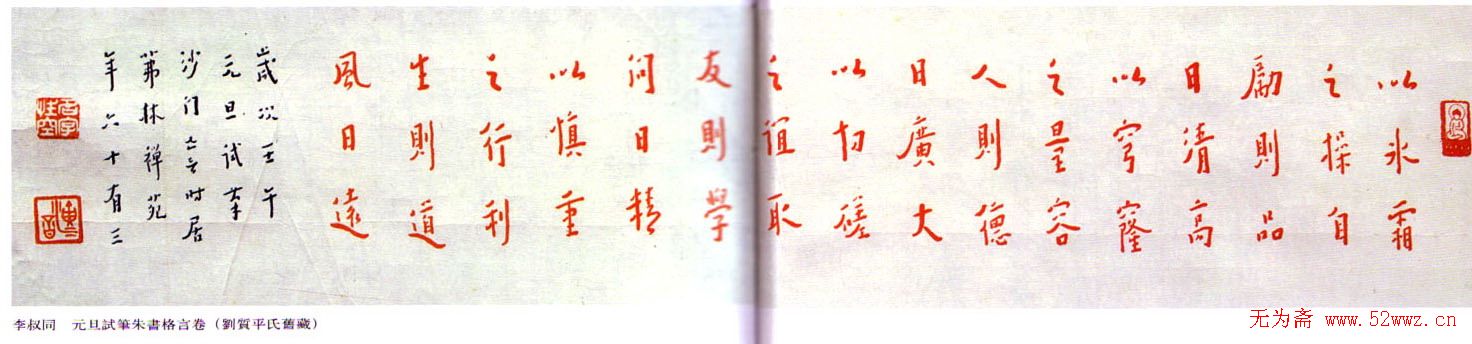 以氷霜
之操自
勵則品
日清高
以穹窿
之量容
人則德
日廣大
以切磋
之誼取
友則學
問日精
以慎重
之行利
生則道
風日遠
歲次壬午
元旦試筆
沙门亡言时居
茀林禪苑
年六十有三
李叔同 元旦試筆朱書格言卷（劉質平氏舊藏）
无为斋 www.52wwz.cn